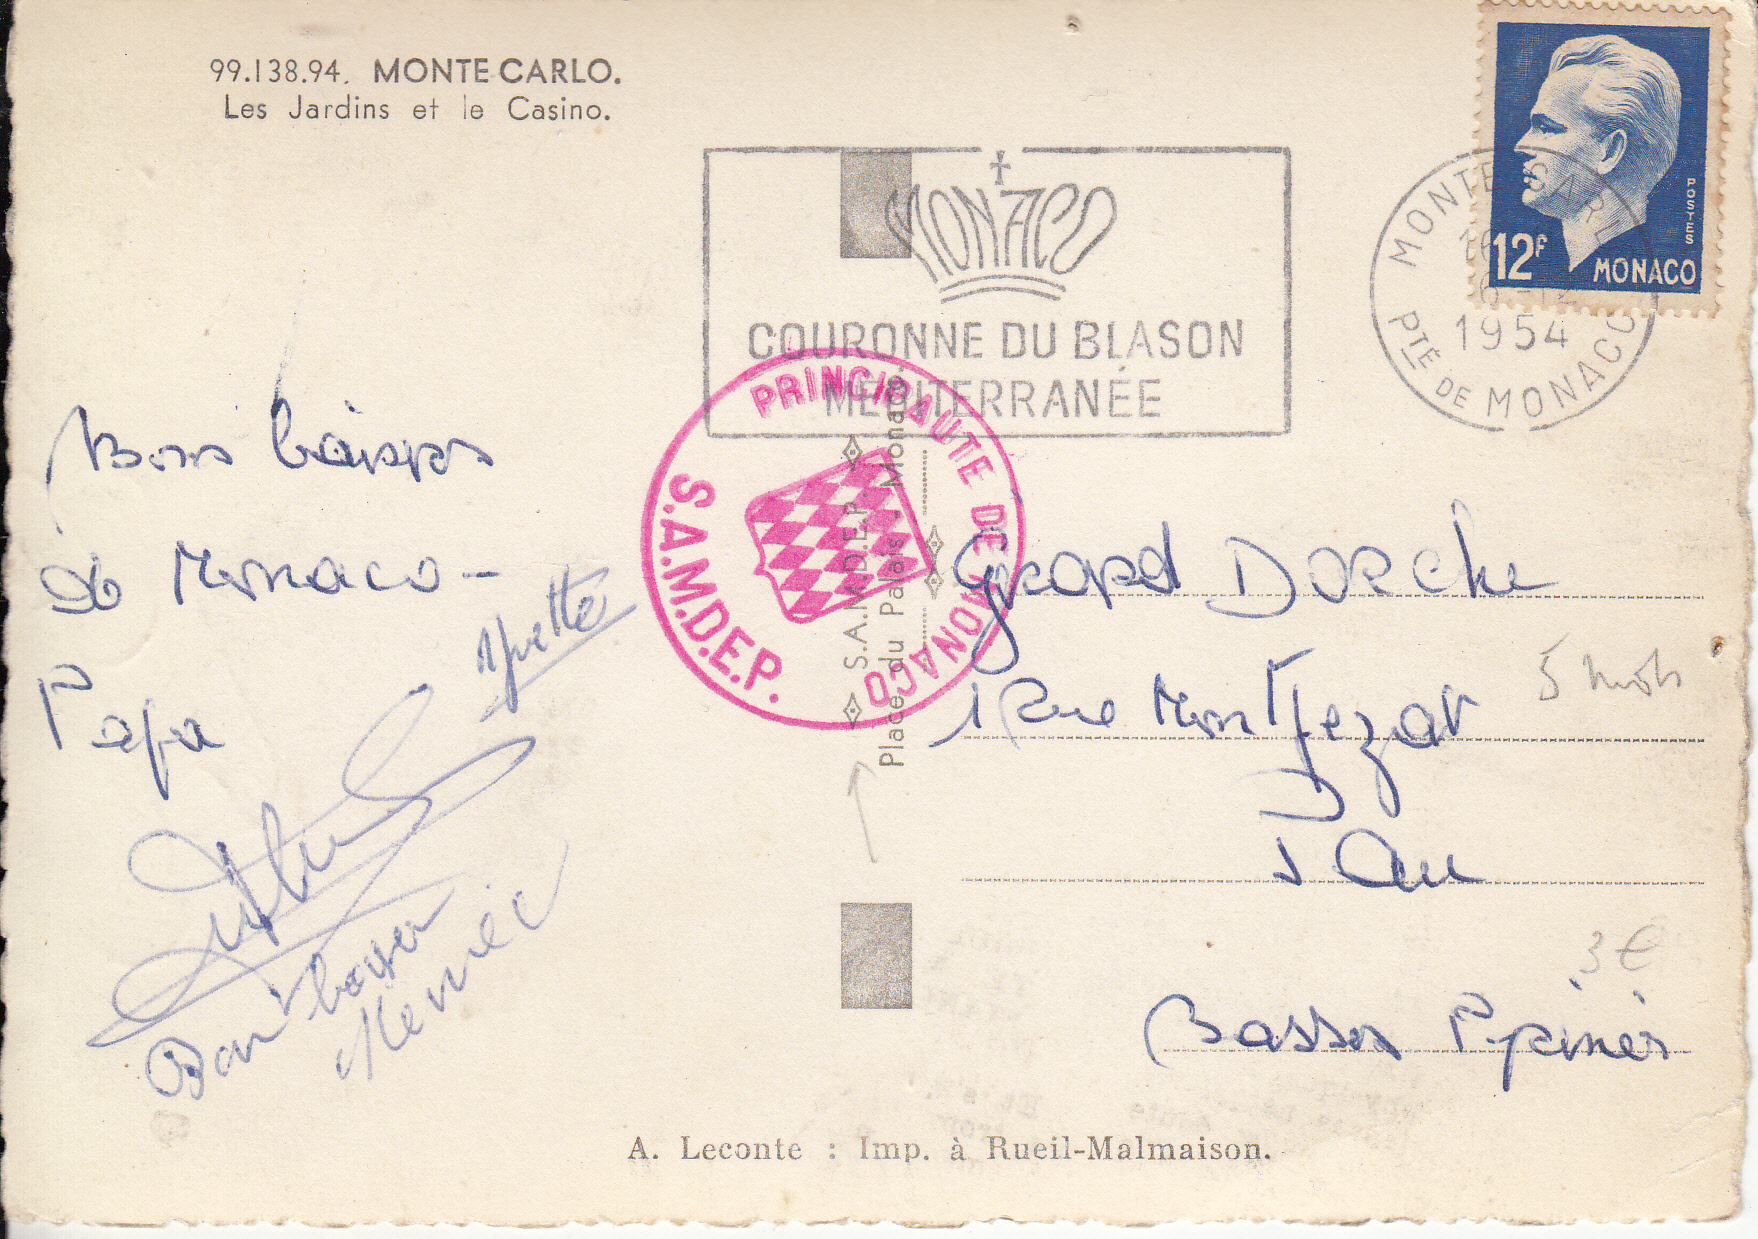 99.138.94. MONTE CARLO.
Les Jardins et le Casino.
MONACO
COURONNE DU BLASON
MÉDITERRANÉE
MONTE-CARLO
16
6-12
1954
PTÉ DE MONACO
POSTES
12F
MONACO
PRINCIPAUTE DE MONACO
S.A.M.D.E.P.
S.A.M.D.E.P.
Place du Palais - Monaco
Bons baisers
de Monaco -
Papa
Yvette
Bon baiser
Gérard DORche
1 Rue Montfezat
Pau
Basses Pyrénées
5 mots
3 €
A. Leconte : Imp. à Rueil-Malmaison.